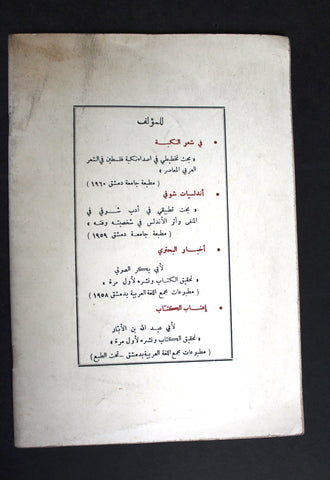 للمؤلف
• في شعر النكبة
« بحث تخطيطي في اصداء نكبة فلسطين في الشعر
العربي المعاصر »
( مطبعة جامعة دمشق ١٩٦٠ )
• أندلسيات شوقي
« بحث تطبيقي في أدب شوقي في
المنفى وأثر الأندلس في شخصيته وفنه »
( مطبعة جامعة دمشق ١٩٥٩ )
• أخبار البحتري
لأبي بكر الصولي
« تحقيق الكتاب ونشره لأول مرة »
( مطبوعات مجمع اللغة العربية بدمشق ١٩٥٨ )
• إعتاب الكتاب
لأبي عبد الله بن الأبار
« تحقيق الكتاب ونشره لأول مرة »
( مطبوعات مجمع اللغة العربية بدمشق - تحت الطبع )